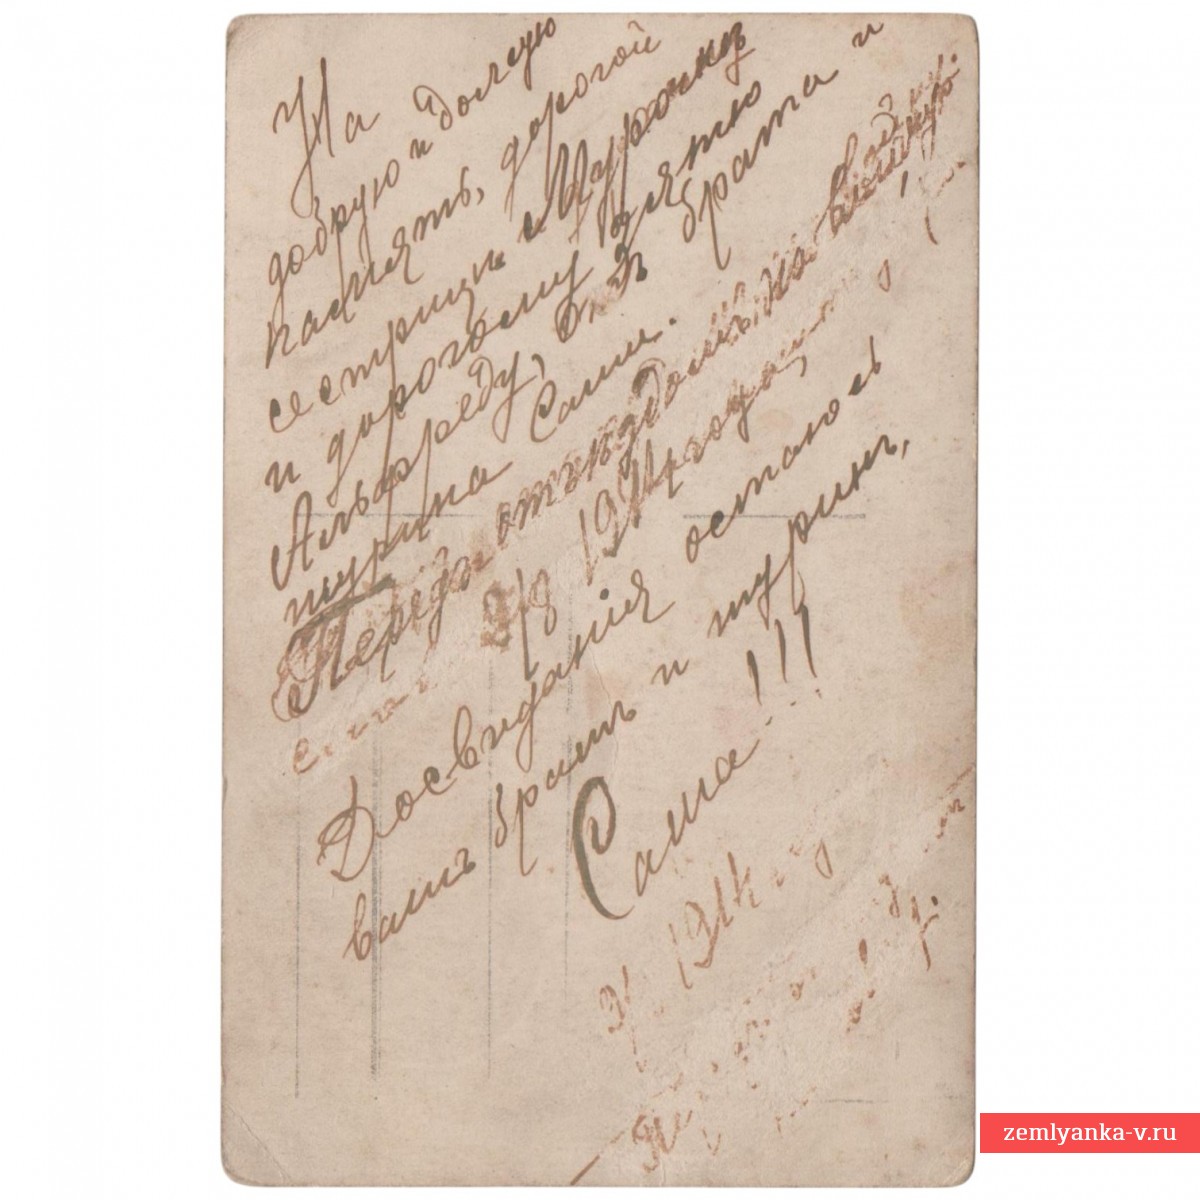 На
добрую и долгую
память, дорогой
сестрице Мурочке
и дорогому зятю
Альфреду, отъ брата и
шурина Саши.
Передъ отъѣздомъ на войну
2/8 1914 года,
Досвиданія остаюсь
вашъ братъ и шуринъ,
Саша!!!
1914
zemlyanka-v.ru